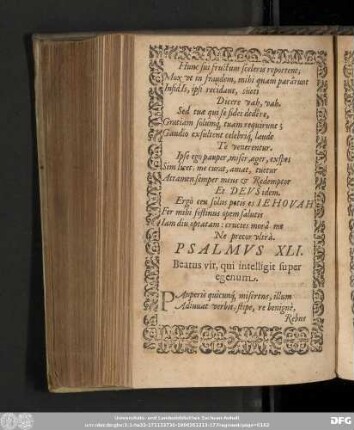 Hunc sui fructum sceleris reportent,
Mox ut in fraudem, mihi quam parârunt
Insidiis, ipsi recidant, sueti
Dicere vah, vah.
Sed tuæ qui se fidei dedêre,
Gratiam solumq; tuam requirunt;
Gaudio exsultent celebriq; laude
Te venerentur.
Ipse ego pauper, miser, æger, exspes
Sim licet: me curat, amat, tuetur
Attamen semper meus & Redemptor
Et DEUS idem.
Ergò ceu solus potis es IEHOVAH
Fer mihi festinus opem salutis
Iam diu optatam: crucies morâ me
Ne precor ultrà.
PSALMVS XLI.
Beatus vir, qui intelligit super
egenum.
PAuperis quicunq; misertus, illum
Adiuvat verbis, stipe, re benignè,
Rebus
Universitäts- und Landesbibliothek Sachsen-Anhalt
DFG